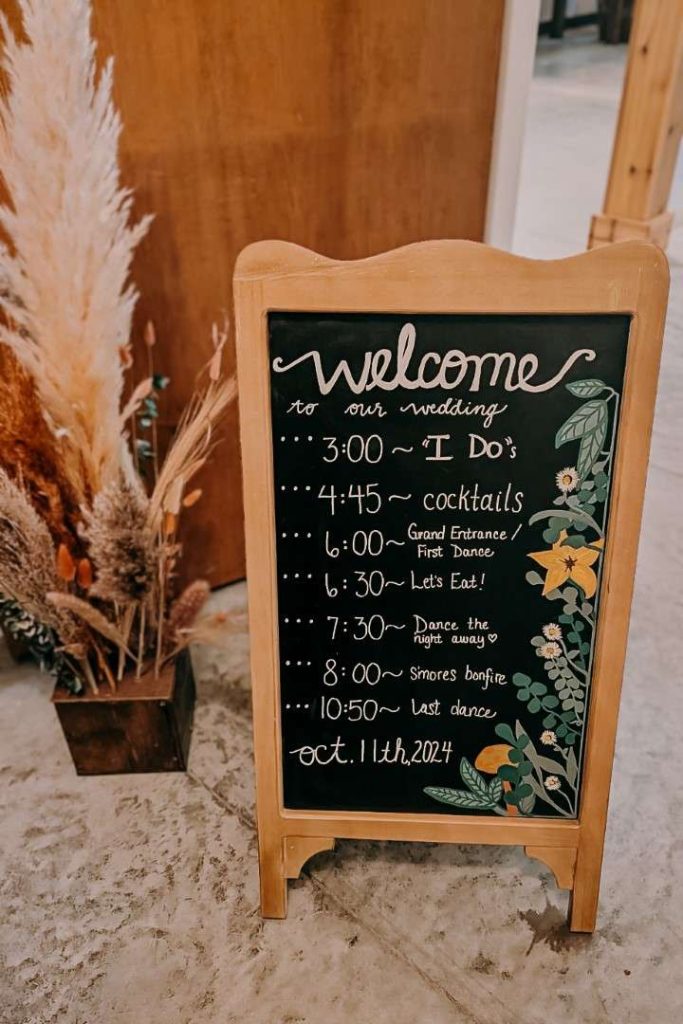 welcome
to our wedding
... 3:00 ~ "I Do"s
... 4:45 ~ cocktails
... 6:00 ~ Grand Entrance /
First Dance
... 6:30 ~ Let's Eat!
... 7:30 ~ Dance the
night away ♡
... 8:00 ~ S'mores bonfire
... 10:50 ~ Last dance
oct. 11th, 2024